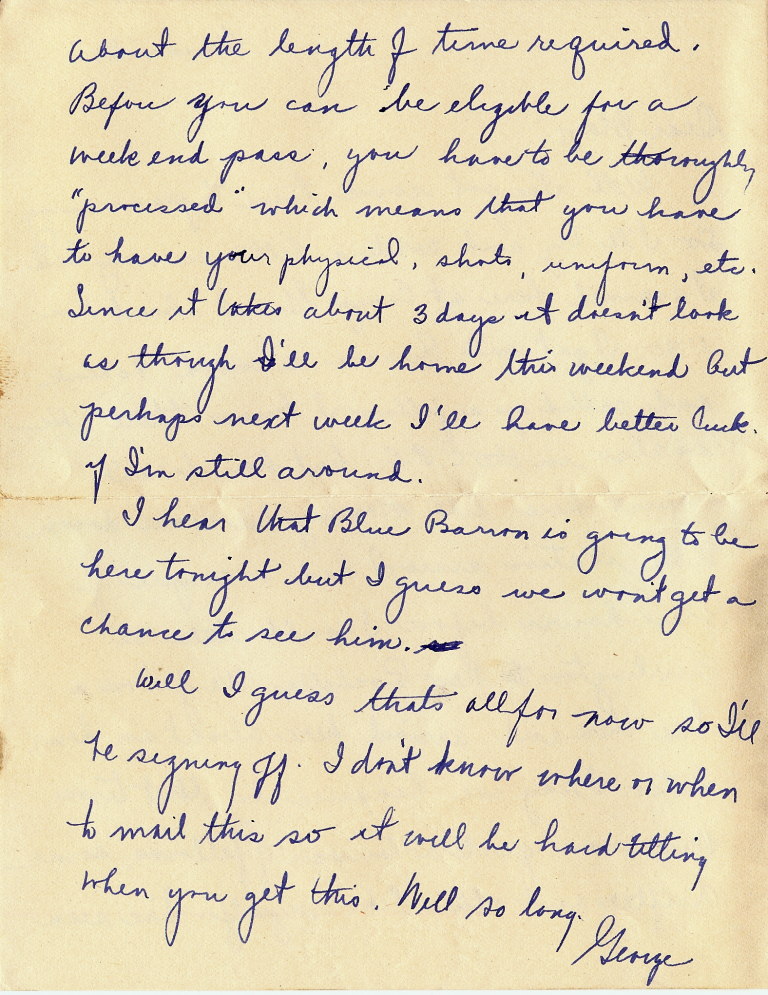 about the length of time required.
Before you can be eligible for a
weekend pass, you have to be thoroughly
"processed" which means that you have
to have your physical, shots, uniform, etc.
Since it takes about 3 days it doesn't look
as though I'll be home this weekend but
perhaps next week I'll have better luck.
if I'm still around.
I hear that Blue Barron is going to be
here tonight but I guess we won't get a
chance to see him.
Well I guess thats all for now so I'll
be signing off. I don't know where or when
to mail this so it will be hard telling
when you get this. Well so long.
George